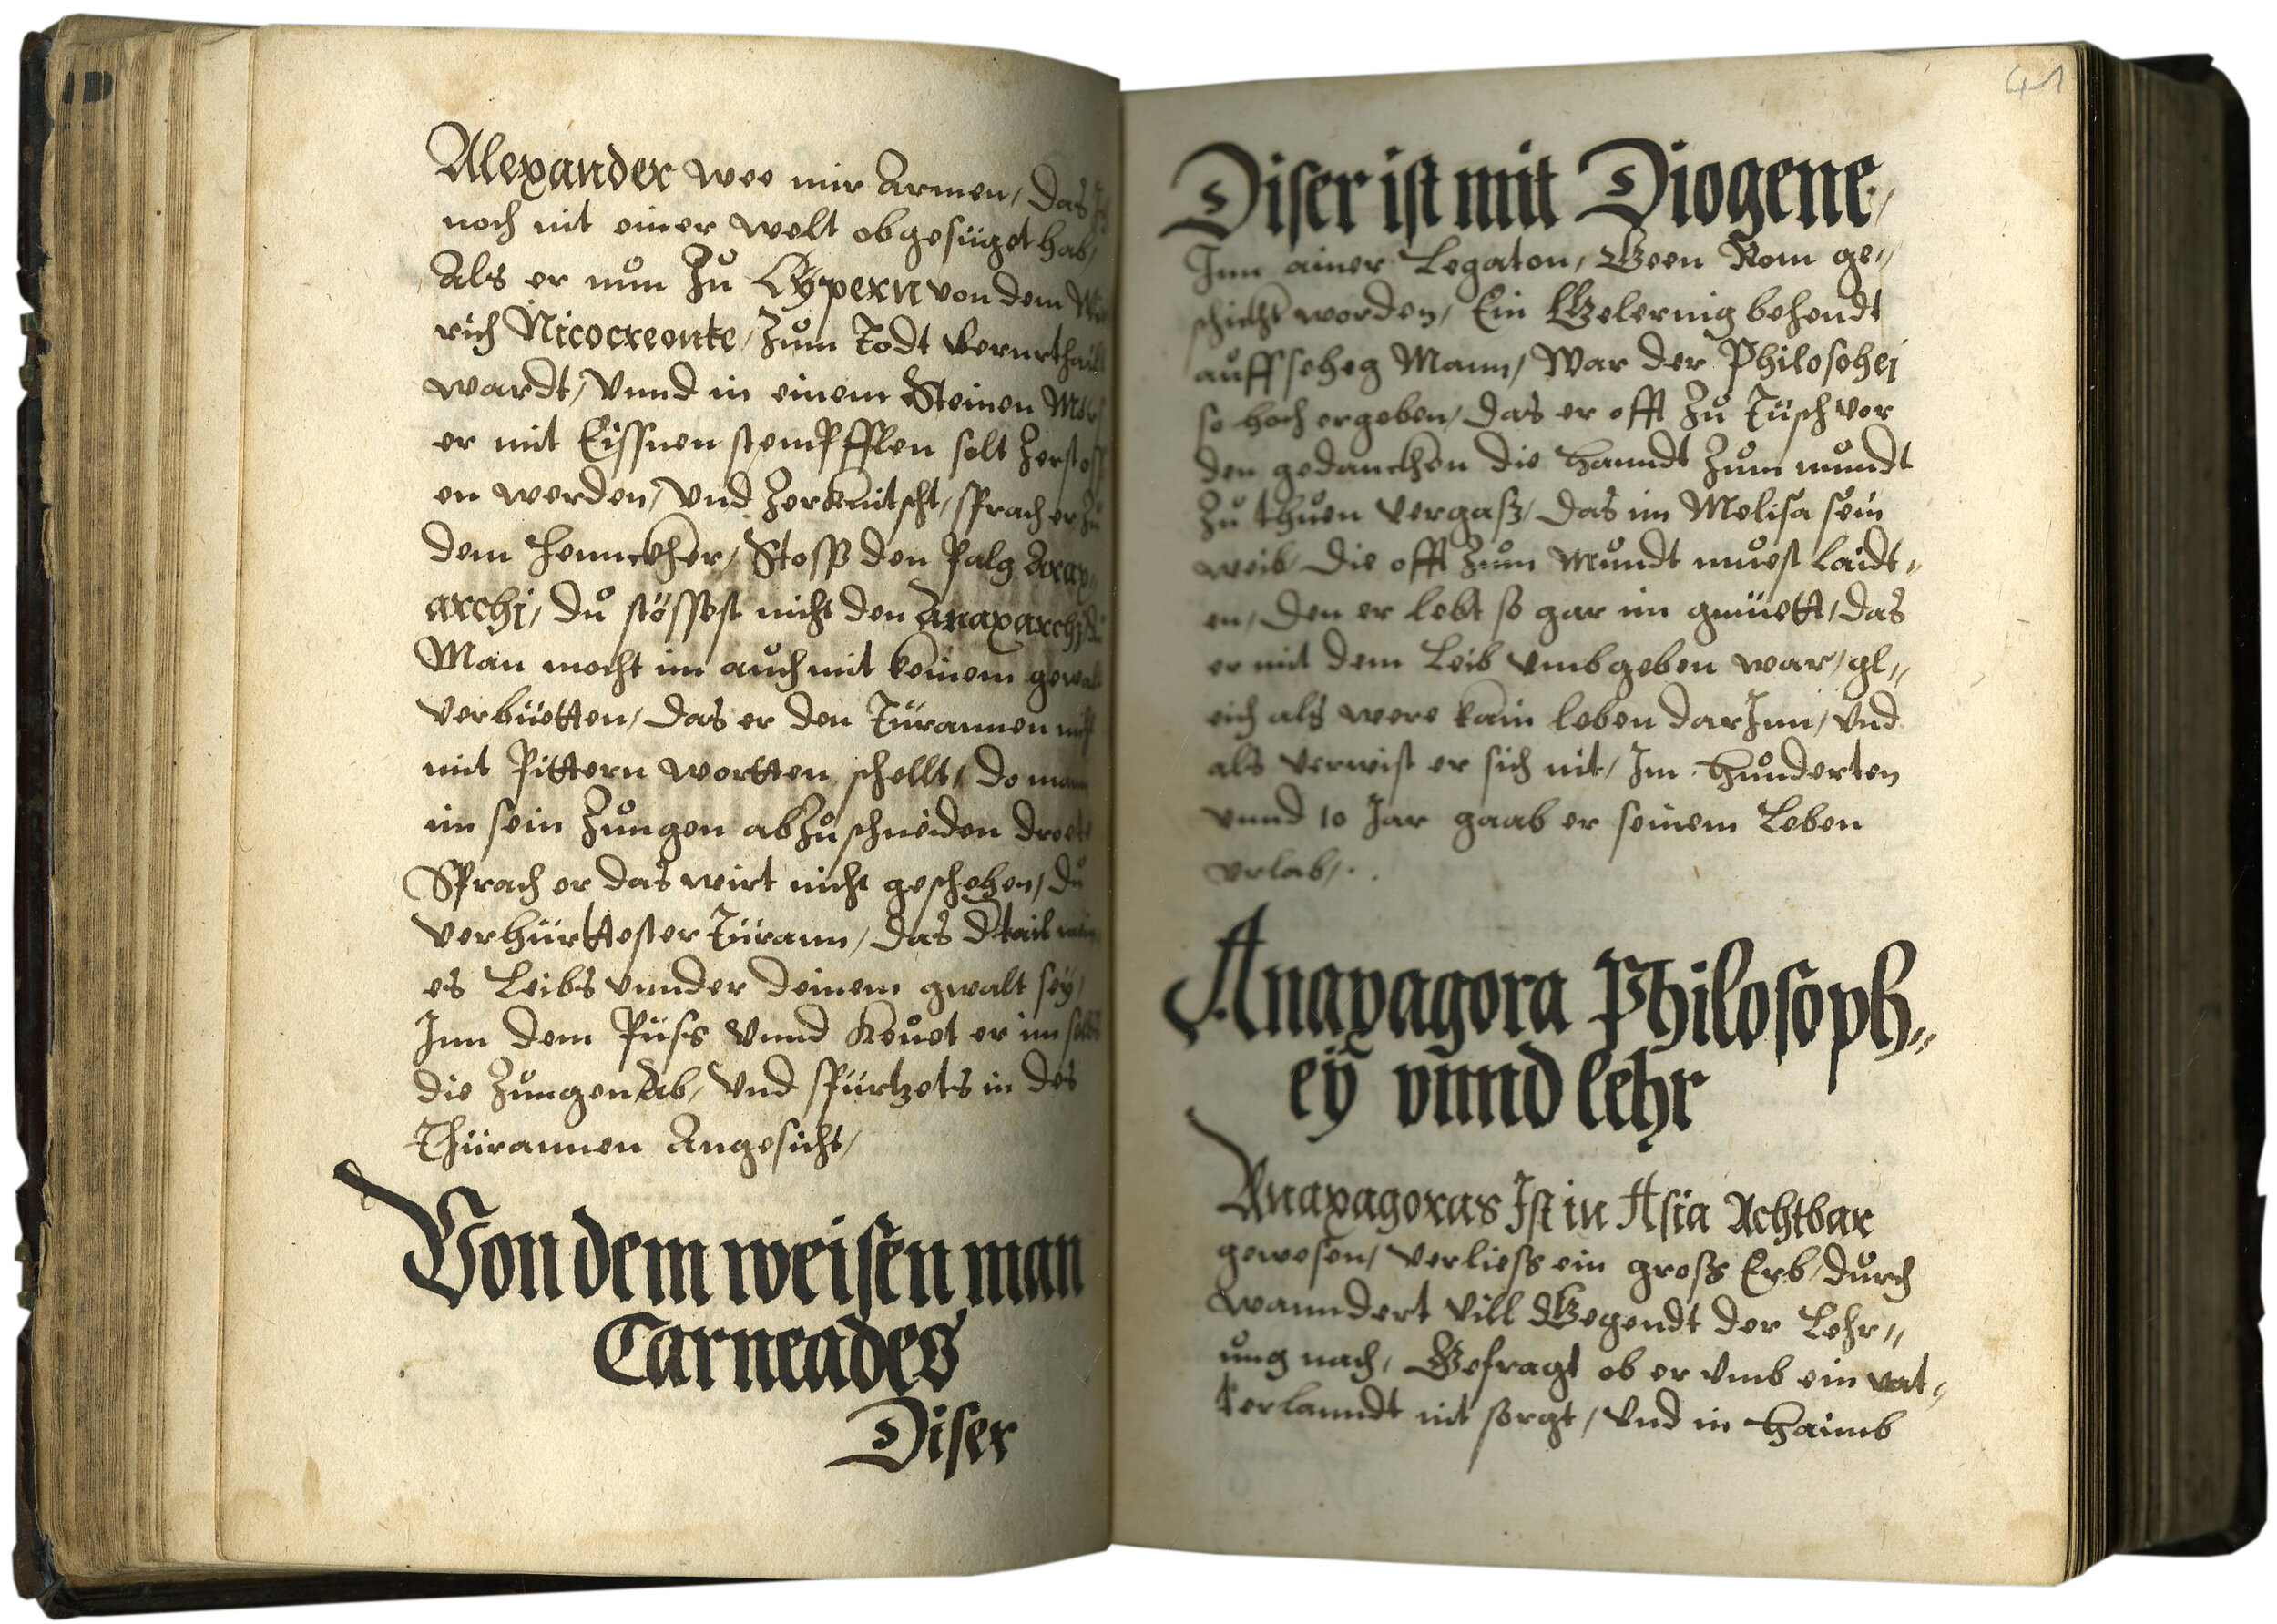 Alexander wee mir Armen, das
noch nit einer welt obgesüget hab,
Als er nun Zů Cÿpern von dem
rich Nicocreonte, Zům Todt verurthailt
wardt, vnnd in einem Steinen
er mit Eissnen stempfflen solt Zerstoss
en werden, vnd Zerknitscht, sprach er Zů
dem hennckher, Stoss den Palg Anax
archj, dů stössest nicht den Anaxarchj
Man mocht im aůch mit keinem gewalt
verbüetten, das er den Türannen nicht
mit Pittern wortten schellt, do man
im sein Zůngen abZůschneiden droet
Sprach er das wirt nicht geschehen, dů
verhürttester Türann, das d tail mein
es Leibs vnnder deinem gwalt seÿ,
Inn dem Püss vnnd Keůet er im selbs
die Zůngen Ab, vnd spürtzets in des
Thürannen Angesicht,
Von dem weisen man
Carneades
Diser
41
Diser ist mit Diogene,
Inn ainer Legaton, Geen Rom ge,,
schickht worden, Ein Gelernig behendt
aůffseheg Mann, War der Philosohej
so hoch ergeben, das er offt Zů Tüsch vor
den gedanckhen die hanndt Zům můndt
Zů thůen vergasz, das im Melisa sein
weib, die offt Zům Můndt můest laidt,,
en, den er lebt so gar im gmüett, das
er mit dem Leib vmbgeben war, gl,,
eich als were kain leben darInn, vnd
als verwist er sich nit, Im hůnderten
vnnd 10 Jar gaab er seinem Leben
vrlab,
Anaxagora Philosoph,,
eÿ vnnd lehr
Anaxagoras Ist in Asia Achtbar
gewesen, verliess ein gross Erb, důrch
wanndert vill Gegendt der Lehr,,
ůng nach, Gefragt ob er vmb ein vat,,
terlanndt nit sorgt, vnd in haimb